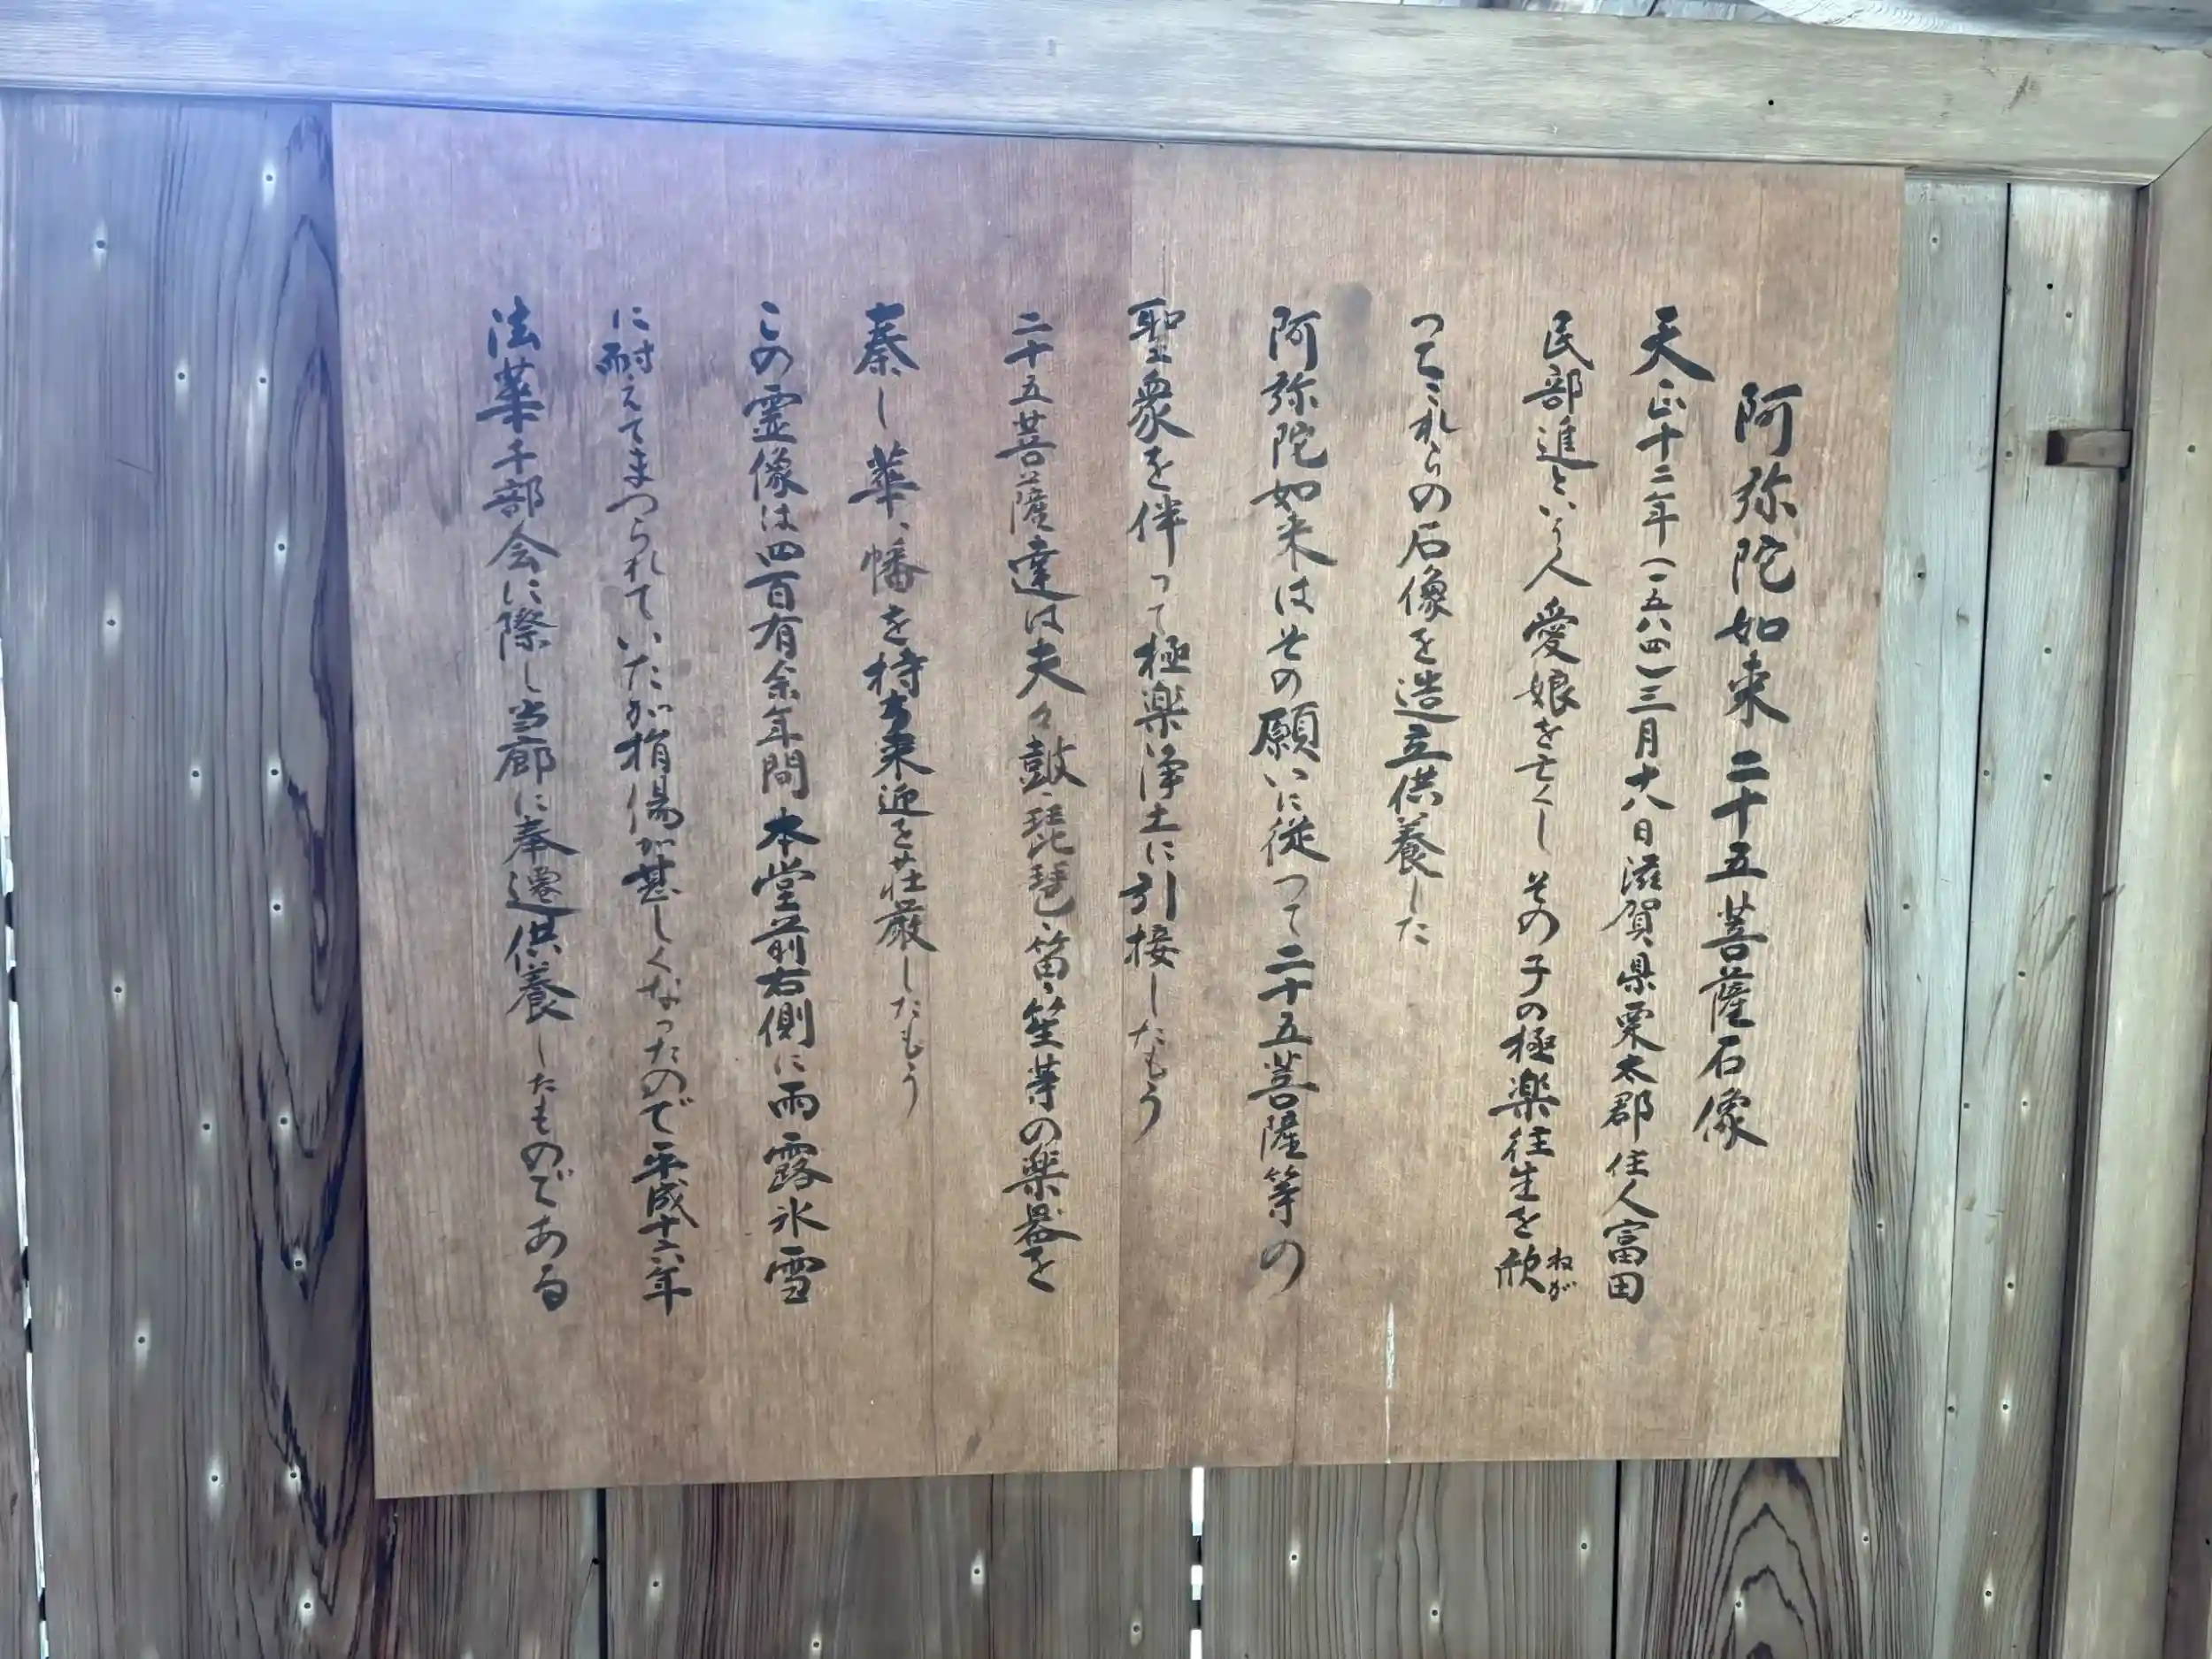 阿弥陀如来二十五菩薩石像
天正十二年(一五八四)三月十八日滋賀県栗太郡住人富田
民部進という人愛娘を亡くしその子の極楽往生を欣ねが
つてこれらの石像を造立供養した
阿弥陀如来はその願いに従つて二十五菩薩等の
聖衆を伴つて極楽浄土に引接したもう
二十五菩薩達は夫々鼓、琵琶、笛、笙等の楽器を
奏し華、幡を持ち来迎を荘厳したもう
この霊像は四百有余年間本堂前右側に雨露氷雪
に耐えてまつられていたが損傷が甚しくなったので平成十六年
法華千部会に際し当廊に奉遷供養したものである